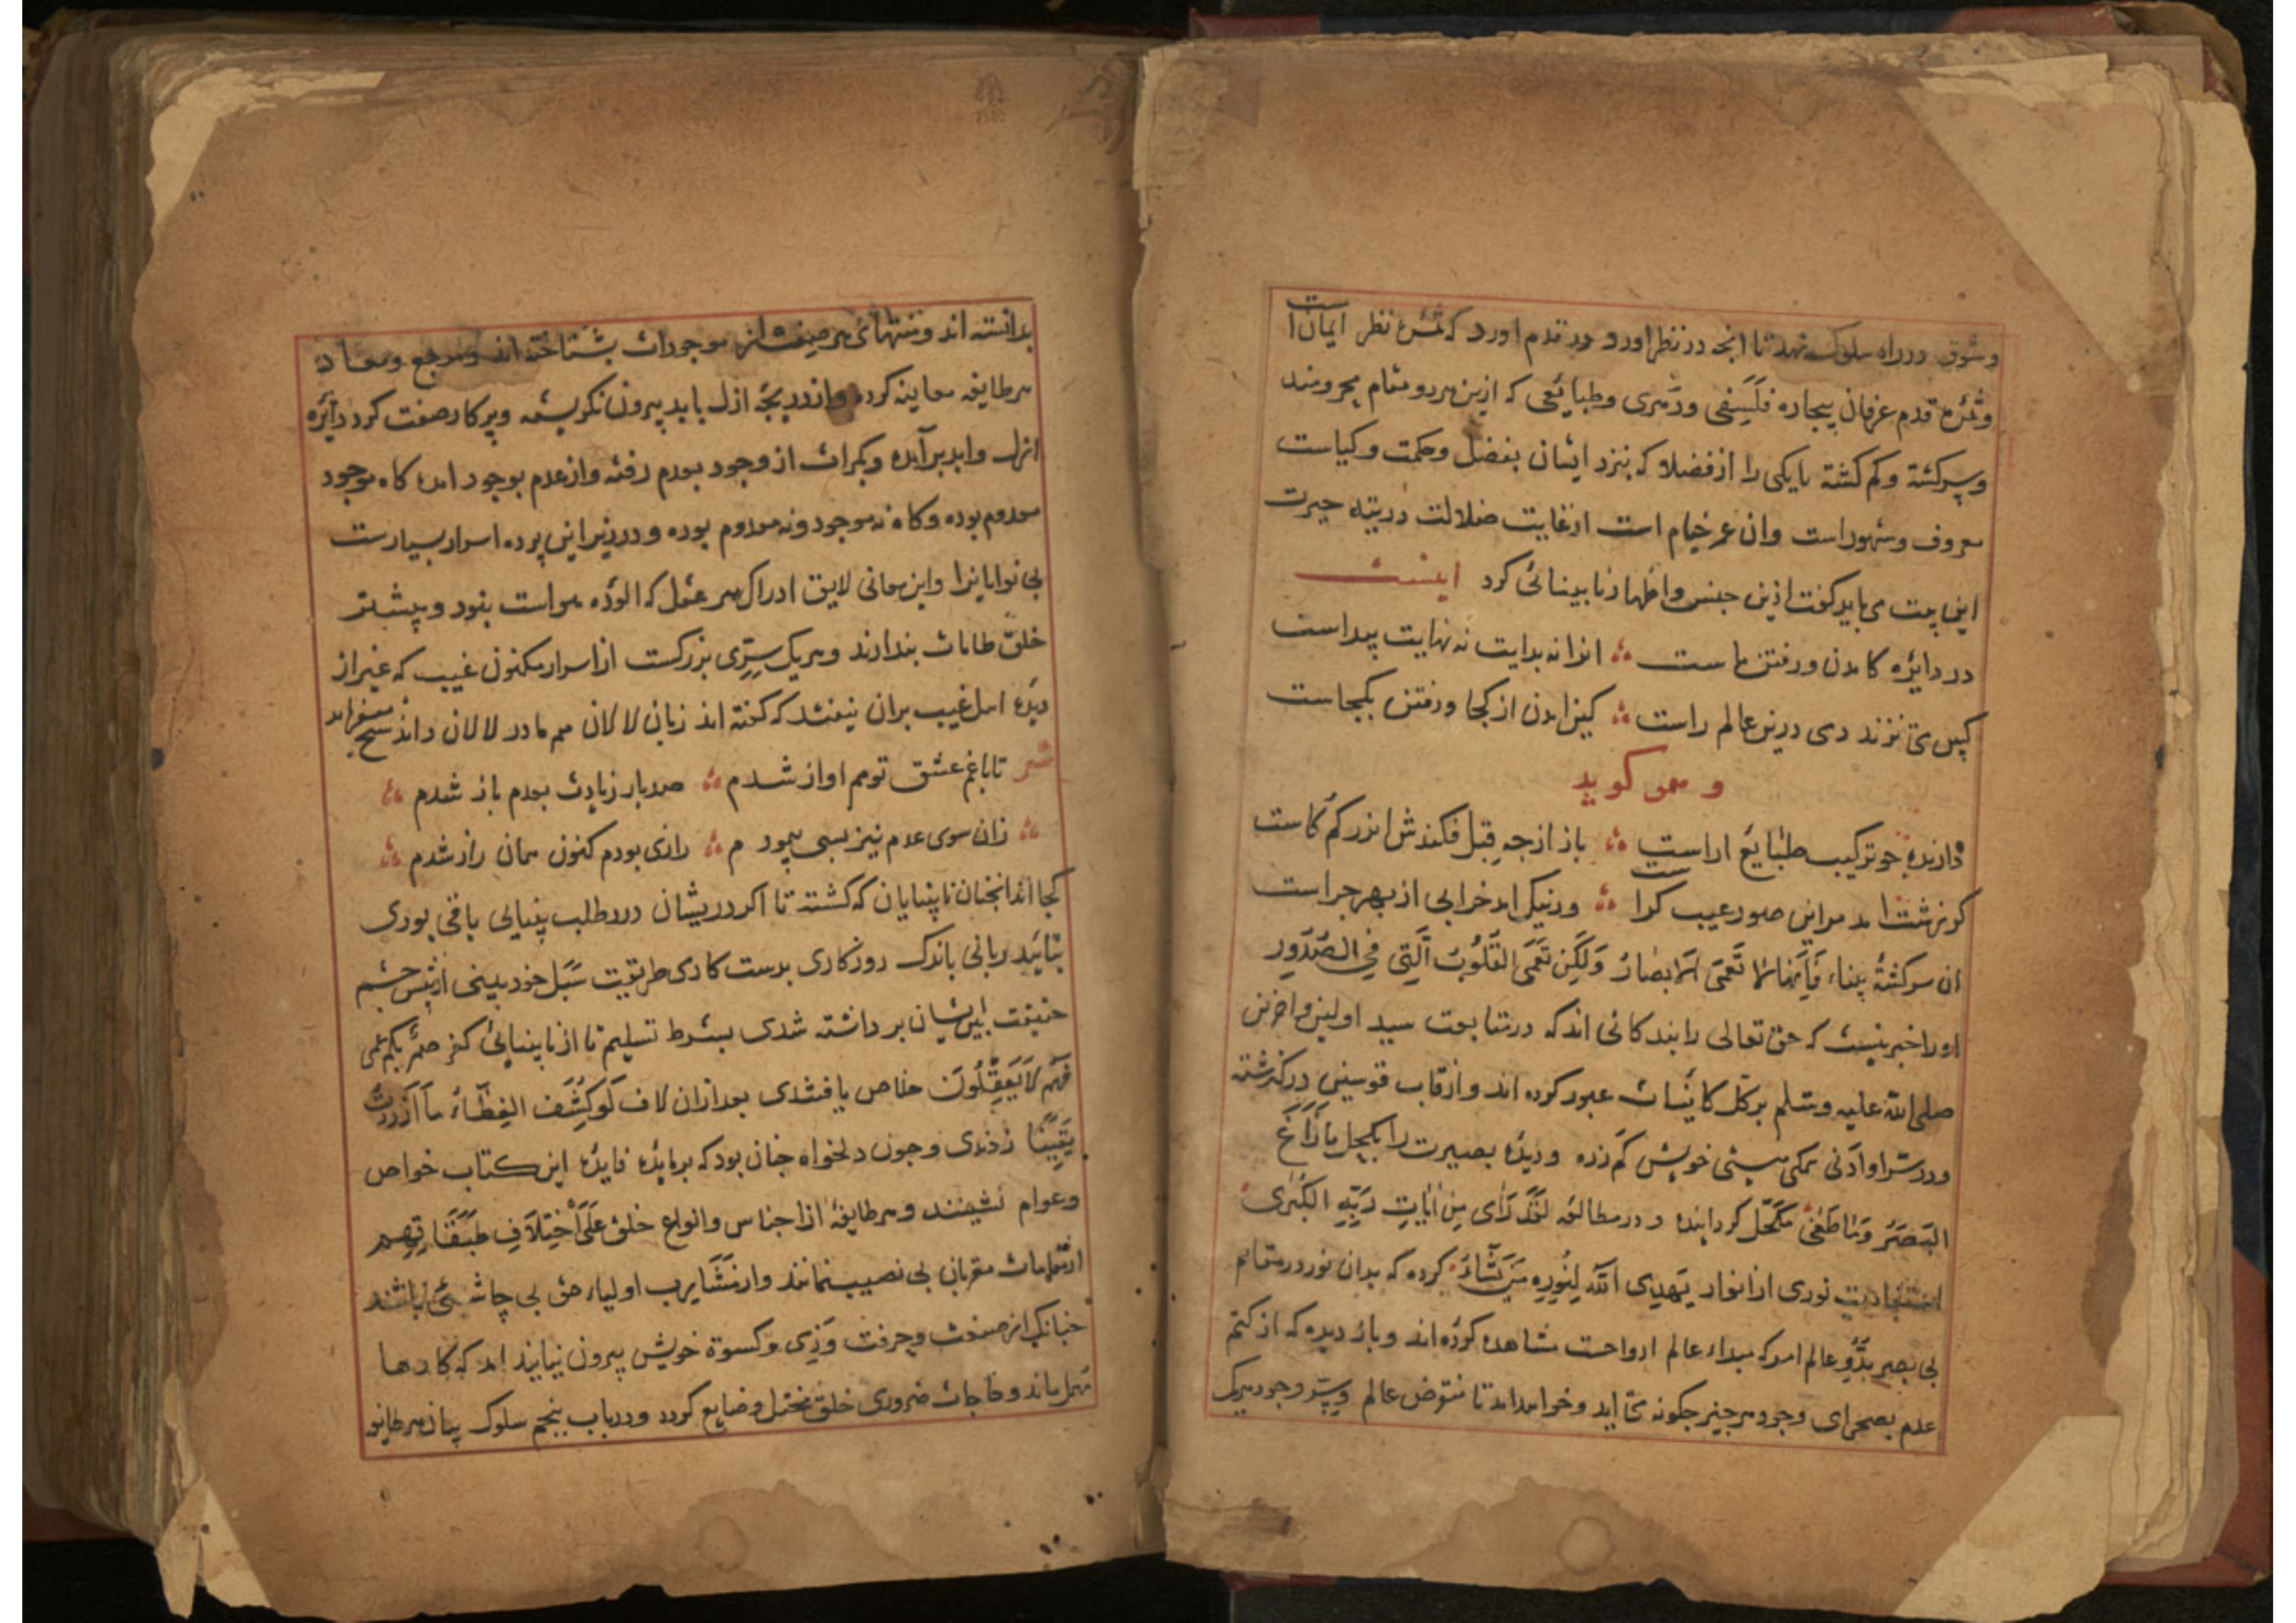 وشوق در راه سلوک نهد تا انجه در نظر اورد در قدم اورد که ثمرۀ نظر ایمان است
وثمرۀ قدم عرفان بیجاره فلسفی ودهری وطبائعی که ازین هر دو مقام محرومند
وسرکشته وکم کشته تا یکی را از فضلا که بنزد ایشان بفضل وحکمت وکیاست
معروف ومشهور است وان عمر خیام است از غایت ضلالت در تیه حیرت
این بیت می باید کفت ازین جنس واظهار نابینائی کرد
در دایره کامدن ورفتن ماست انرا نه بدایت نه نهایت پیداست
کس می نزند دمی درین عالم راست کین امدن از کجا ورفتن بکجاست
و همو کوید
دارنده جو ترکیب طبایع اراست باز از جه قبل فکندش اندر کم کاست
کر زشت امد مر این صور عیب کراست ور نیک امد خرابی از بهر جراست
ان سرکشتۀ نابیناء فَاِنَّهَا لَا تَعْمَی الْاَبْصَارُ وَلٰکِن تَعْمَی الْقُلُوبُ الَّتِی فِی الصُّدُورِ
اورا خبر نیست که حق تعالی را بندکانی اند که در متابعت سید اولین واخرین
صلی الله علیه وسلم بر کل کاینات عبور کرده اند واز قاب قوسین در کذشته
ودر سر او ادنی همکی هستی خویش کم زده ودیدۀ بصیرت را بکحل مَا زَاغَ
الْبَصَرُ وَمَا طَغٰی مکحّل کردانیده ودر مطالعه لَقَدْ رَاٰی مِنْ اٰیَاتِ رَبِّهِ الْکُبْرٰی
استفادت نوری از انوار یَهْدِی اللهُ لِنُورِهِ مَن یَّشَاءُ کرده که بدان نور در مقام
بی یبصر بَدْوِ عالم امر که مبداء عالم ارواحست مشاهده کرده اند وباز دیده که از کتم
عدم بصحرای وجود هر جیز جکونه می اید وخواهد امد تا منقرض عالم وسرّ وجود هر یک
بدانسته اند ومنتهای هر صنف از موجودات بشناخته اند ومرجع ومعاد
هر طایفه معاینه کرده واز دریجۀ ازل بابد بیرون نکریسته وپرکار صفت کرد دایره
ازل وابد بر آمده وبکرات از وجود بعدم رفته واز عدم بوجود امده کاه موجود
معدوم بوده وکاه نه موجود ونه معدوم بوده ودر زیر این پرده اسرار بسیارست
بی نوایانرا واین معانی لایق ادراک هر عقل که الودۀ هواست نبود وبیشتر
خلق طامات پندارند وهر یک سِرّی بزرکست از اسرار مکنون غیب که غیر از
دیدۀ اهل غیب بران نیفتد که کفته اند زبان لالان هم مادر لالان داند
شعر تا با غم عشق تو هم اواز شدم صد بار زیادت بعدم باز شدم
زان سوی عدم نیز بسی پیمودم رازی بودم کنون همان راز شدم
کجا اند انجنان نابینایان که کشته تا اکر در ایشان درد طلب بینایی باقی بودی
بتایید ربانی باندک روزکاری بدست کاری طریقت سَبَل خود بینی از پیش چشم
حقیقت بین ایشان برداشته شدی بشرط تسلیم تا از نابینایی کفر صُمٌّ بُکْمٌ عُمْیٌ
فَهُمْ لَا یَعْقِلُونَ خلاص یافتندی بعد ازان لاف لَوْ کُشِفَ الْغِطَاءُ مَا ازْدَدْتُ
یَقِینًا زدندی وجون دلخواه جنان بود که بر مایدۀ فایدۀ این کتاب خواص
وعوام نشینند وهر طایفۀ از اجناس وانواع خلق عَلَی اخْتِلَافِ طَبَقَاتِهِم
از مقامات مقربان بی نصیب نمانند واز مَشَارِب اولیاء حق بی چاشنی نباشند
جنانک از صنعت وحرفت وزی وکسوة خویش بیرون نیایند که کارها
مهمل ماند وحاجات ضروری خلق مختل وضایع کردد ودر باب پنجم سلوک بیان هر طایفه